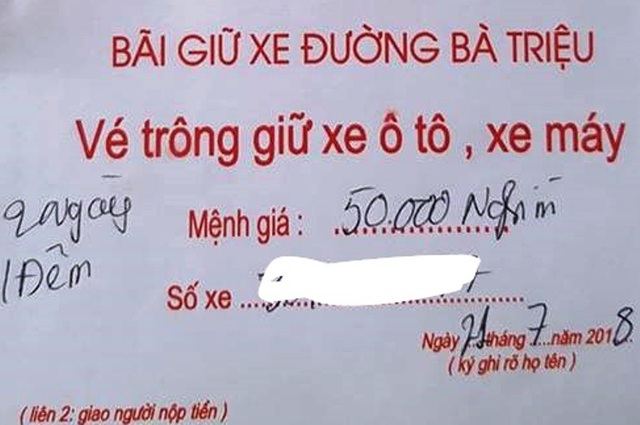 BÃI GIỮ XE ĐƯỜNG BÀ TRIỆU
Vé trông giữ xe ô tô , xe máy
2 ngày
1 Đêm
Mệnh giá : 50.000 Nghìn
Số xe
Ngày 21 tháng 7 năm 2018
( ký ghi rõ họ tên )
( liên 2: giao người nộp tiền )